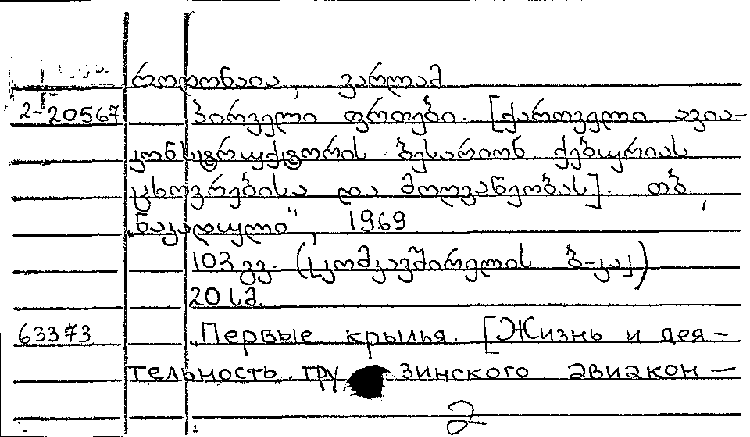 როდონაია, ვარლამ
2-20567 პირველი ფრთები. [ქართველი ავია-
კონსტრუქტორის ბესარიონ ქებურიას
ცხოვრებისა და მოღვაწეობას]. თბ.
„ნაკადული", 1969
102 გვ. (კომკავშირელის ბ-კა)
20 სმ.
63373 Первые крылья. [Жизнь и дея-
тельность грузинского авиакон-
2